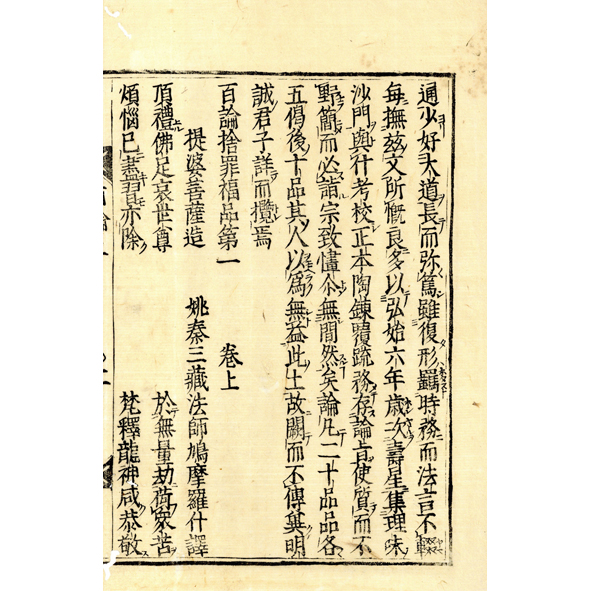 通少好大道長而弥篤雖復形羈時務而法言不輟
每撫茲文所慨良多以弘始六年歲次壽星集理味
沙門與什考校正本陶鍊覆疏務存論旨使質而不
野簡而必詣宗致盡尒無間然矣論凡二十品品各
五偈後十品其人以為無益此土故闕而不傳冀明
誠君子詳而攬焉
百論捨罪福品第一　卷上
提婆菩薩造　姚秦三藏法師鳩摩羅什譯
頂禮佛足哀世尊　於無量劫荷衆苦
煩惱已盡習亦除　梵釋龍神咸恭敬